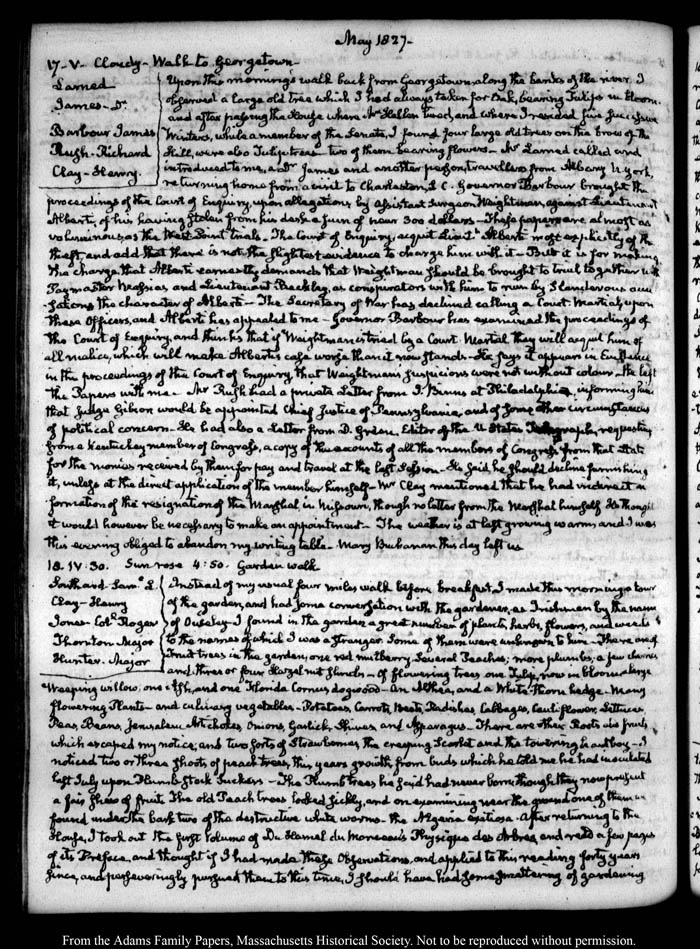 May 1827.
17. V. Cloudy. Walk to Georgetown.
Larned
James. Dr.
Barbour James
Rush. Richard
Clay. Henry.
Upon the morning's walk back from Georgetown, along the banks of the river I
observed a large old tree which I had always taken for Oak, bearing Tulips in bloom.
and after passing the House where Mr Hellen lived, and where I resided five successive
Winters, while a member of the Senate, I found four large old trees on the brow of the
Hill, were also Tulip trees two of them bearing flowers. Mr Larned called and
introduced to me, a Dr James and another person, travellers from Albany N. York,
returning home from a visit to Charleston, S. C. Governor Barbour brought the
proceedings of the Court of Enquiry, upon allegations, by Assistant Surgeon Weightman, against Lieutenant
Alberti, of his having stolen from his desk a sum of near 300 dollars. These papers are almost as
voluminous, as the West Point trials. The Court of Enquiry, acquit Lieut. Alberti most explicitly of the
theft, and add that there is not the slightest evidence to charge him with it. But it is for making
this charge that Alberti earnestly demands that Weightman should be brought to trial together with
Paymaster and Lieutenant as conspirators with him to ruin by slanderous accu
sations the character of Alberti. The Secretary of War has declined calling a Court Martial, upon
these Officers, and Alberti has appealed to me. Governor Barbour has examined the proceedings of
this Court of Enquiry, and thinks that if Weightman is tried by a Court Martial they will acquit him of
all malice, which will make Alberti's case worse than it now stands. He says it appears in Evidence
in the proceedings of the Court of Enquiry that Weightman's suspicions were not without colour. He left
the Papers with me. Mr Rush had a private Letter from J. Binns at Philadelphia, informing him
that Judge Gibson would be appointed Chief Justice of Pennsylvania, and of some other circumstances
of political concern. He had also a Letter from D. Green, Editor of the U. States Telegraph, requesting
from a Kentucky member of Congress, a copy of the accounts of all the members of Congress from that State
for the monies received by them for pay and travel at the last Session. He said he should decline furnishing
it, unless at the direct application of the member himself. Mr Clay mentioned that he had received in
formation of the resignation of the Marshal in Missouri, though no letter from the Marshal himself. He thought
it would however be necessary to make an appointment. The weather is at last growing warm, and I was
this evening obliged to abandon my writing table. Mary Buchanan this day left us
18. IV. 30. Sun rose 4:50. Garden walk
Southard Saml. L.
Clay. Henry
Jones. Coll. Roger
Thornton. Major
Hunter. Major
Instead of my usual four miles walk before breakfast, I made this morning a tour
of the garden, and had some conversation with the gardener, an Irishman by the name
of Ousley. I found in the garden a great number of plants, herbs, flowers, and weeds
to the names of which I was a stranger. Some of them were unknown to him. There are of
fruit trees in the garden, one red mulberry, several Peaches, more plumbs, a few cherries
and three or four Hazel nut shrubs. Of flowering trees one Tulip, now in bloom, a large
Weeping willow, one Ash, and one Florida Cornus, dogwood. An Althea, and a White Thorn hedge. Many
flowering Plants and culinary vegetables. Potatoes, Carrots, Beets, Radishes, Cabbages, Cauliflower, Lettuces
Peas, Beans, Jerusalem Artichokes, Onions, Garlick, Shives and Asparagus. There are other Roots and fruits
which escaped my notice, and two sorts of Strawberries, the creeping Scarlet and the towering hautboy. I
noticed two or three shoots of peach trees, this years growth, from buds which he told me he had inoculated
last July upon Plumb stock Suckers. The Plumb trees he said had never borne, though they now present
a fair show of fruit. The old Peach trees looked sickly, and on examining near the ground one of them we
found under the bark two of the destructive white worms. the Aegeria exitiosa. After returning to the
House, I took out the first volume of Du Hamel du Monceau's Physique des Arbres, and read a few pages
of its Preface, and thought if I had made these Observations, and applied to this reading forty years
since, and perseveringly pursued them to this time, I should have had some smattering of gardening
From the Adams Family Papers, Massachusetts Historical Society. Not to be reproduced without permission.